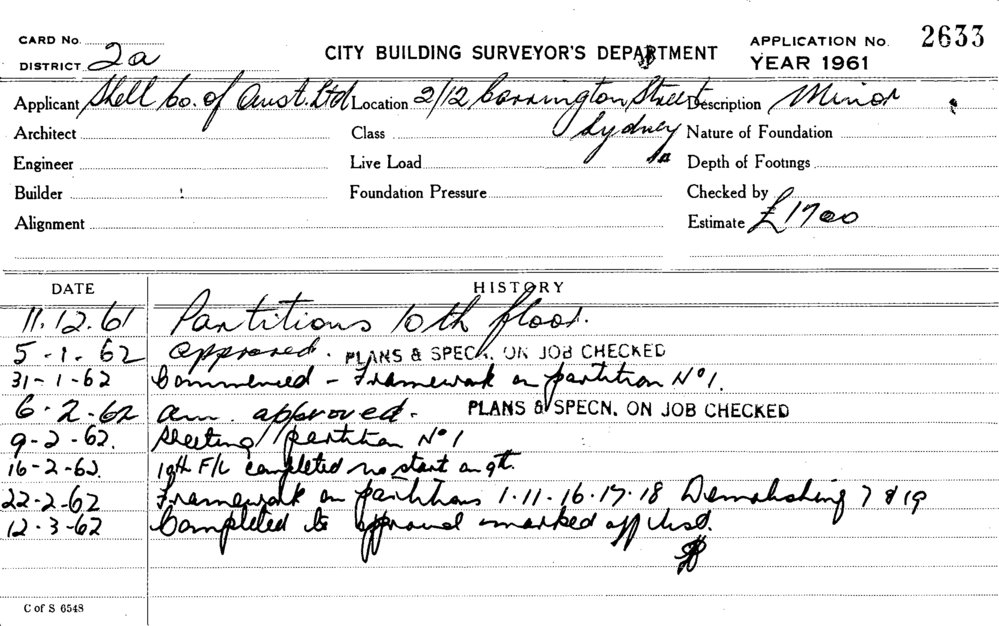 CARD No.
DISTRICT 2a
CITY BUILDING SURVEYOR'S DEPARTMENT
APPLICATION No. 2633
YEAR 1961
Applicant Shell Co. of Aust. Ltd Location 2/12 Carrington Street Description Minor
Architect Class Sydney Nature of Foundation
Engineer Live Load Depth of Footings
Builder Foundation Pressure Checked by
Alignment Estimate £1700
DATE HISTORY
11.12.61 Partitions 10th floor.
5-1-62 approved. PLANS & SPECN. ON JOB CHECKED
31-1-62 Commenced - Framework on partition No 1.
6.2-62 am. approved. PLANS & SPECN. ON JOB CHECKED
9-2-62. Sheeting partition No 1
16-2-62. 10th F/L completed no start on 9th.
22-2-62 Framework on partitions 1.11.16.17.18 Demolishing 7 & 19
12.3-62 Completed to approval marked off
C of S 6548